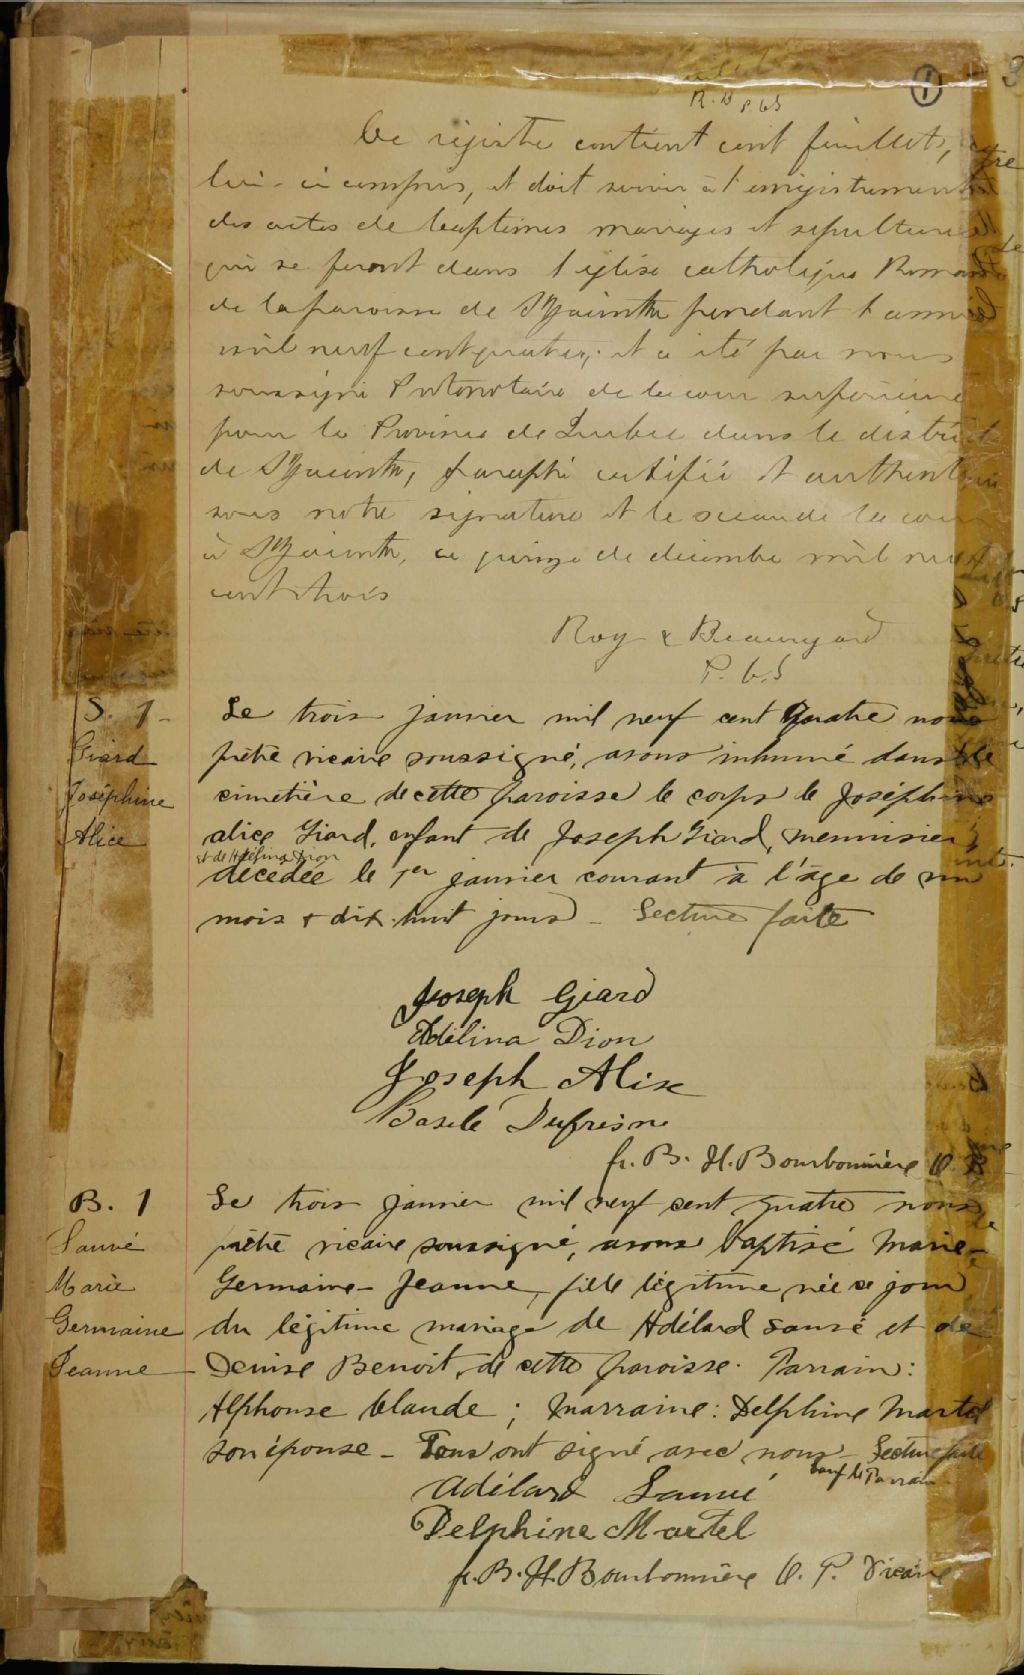 ①
R. & B P. C. S
Ce registre contient cent feuillets,
celui-ci compris, et doit servir à l'enregistrement
des actes de baptêmes mariages et sepultures
qui se feront dans l'église catholique Romaine
de la paroisse de St Hyacinthe pendant l'année
mil neuf cent quatre, et a été par nous
soussigné Protonotaire de la cour superieure
pour la Province de Quebec dans le district
de St Hyacinthe, paraphé certifié et authentiqué
sous notre signature et le sceau de la cour
à St Hyacinthe, ce quinze de decembre mil neuf
cent trois
Roy & Beauregard
P. C. S
S. 1 - Le trois janvier mil neuf cent quatre nous
Giard prêtre vicaire soussigné, avons inhumé dans le
Joséphine cimetière de cette paroisse le corps de Joséphine
Alice alice Giard, enfant de Joseph Giard, menuisier,
et de Adélina Dion
décédée le 1er janvier courant à l'âge de un
mois & dix-huit jours - Lecture faite
Joseph Giard
Adélina Dion
Joseph Alix
Basile Dufresne
fr. B. H. Bourbonnière O.
B. 1 Le trois janvier mil neuf cent quatre nous
Sauvé prêtre vicaire soussigné, avons baptisé Marie-
Marie Germaine-Jeanne, fille légitime née ce jour
Germaine du légitime mariage de Adélard Sauvé et de
Jeanne Denise Benoit, de cette paroisse. Parrain:
Alphonse Claude; Marraine: Delphine Martel
son épouse - Tous ont signé avec nous - Lecture faite
sauf le Parrain
Adélard Sauvé
Delphine Martel
fr. B. H. Bourbonnière O. P. Vicaire